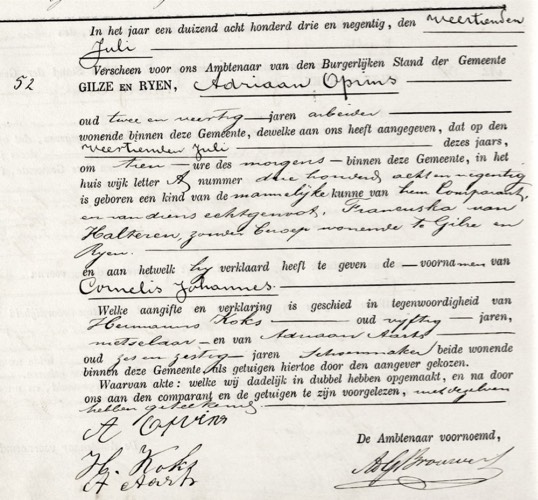 In het jaar een duizend acht honderd drie en negentig, den veertienden
Juli
Verscheen voor ons Ambtenaar van den Burgerlijken Stand der Gemeente
52
GILZE EN RYEN, Adriaan Opims
oud twee en veertig jaren arbeider
wonende binnen deze Gemeente, dewelke aan ons heeft aangegeven, dat op den
veertienden Juli dezes jaars,
om tien ure des morgens binnen deze Gemeente, in het
huis wijk letter A nummer drie honderd acht en negentig
is geboren een kind van de mannelijke kunne van hem Comparant,
en van diens echtgenoot, Franciska van
Halteren, zonder beroep wonende te Gilze en
Ryen.
en aan hetwelk hy verklaard heeft te geven de voornamen van
Cornelis Johannes.
Welke aangifte en verklaring is geschied in tegenwoordigheid van
Hermanus Koks oud vijftig jaren,
metselaar en van Adriaan Aarts
oud zes en zestig jaren Schoenmaker beide wonende
binnen deze Gemeente als getuigen hiertoe door den aangever gekozen.
Waarvan akte: welke wij dadelijk in dubbel hebben opgemaakt, en na door
ons aan den comparant en de getuigen te zijn voorgelezen, met dezelven
hebben geteekend.
A Opvins
De Ambtenaar voornoemd,
H. Koks
A Aarts